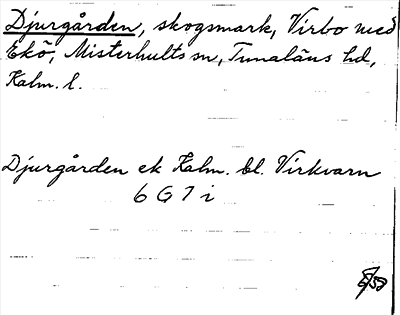 Djurgården, skogsmark, Virbo med
Ekö, Misterhults sn, Tunaläns hd,
Kalm. l.
Djurgården ek Kalm. bl. Virkvarn
6 G 7 i